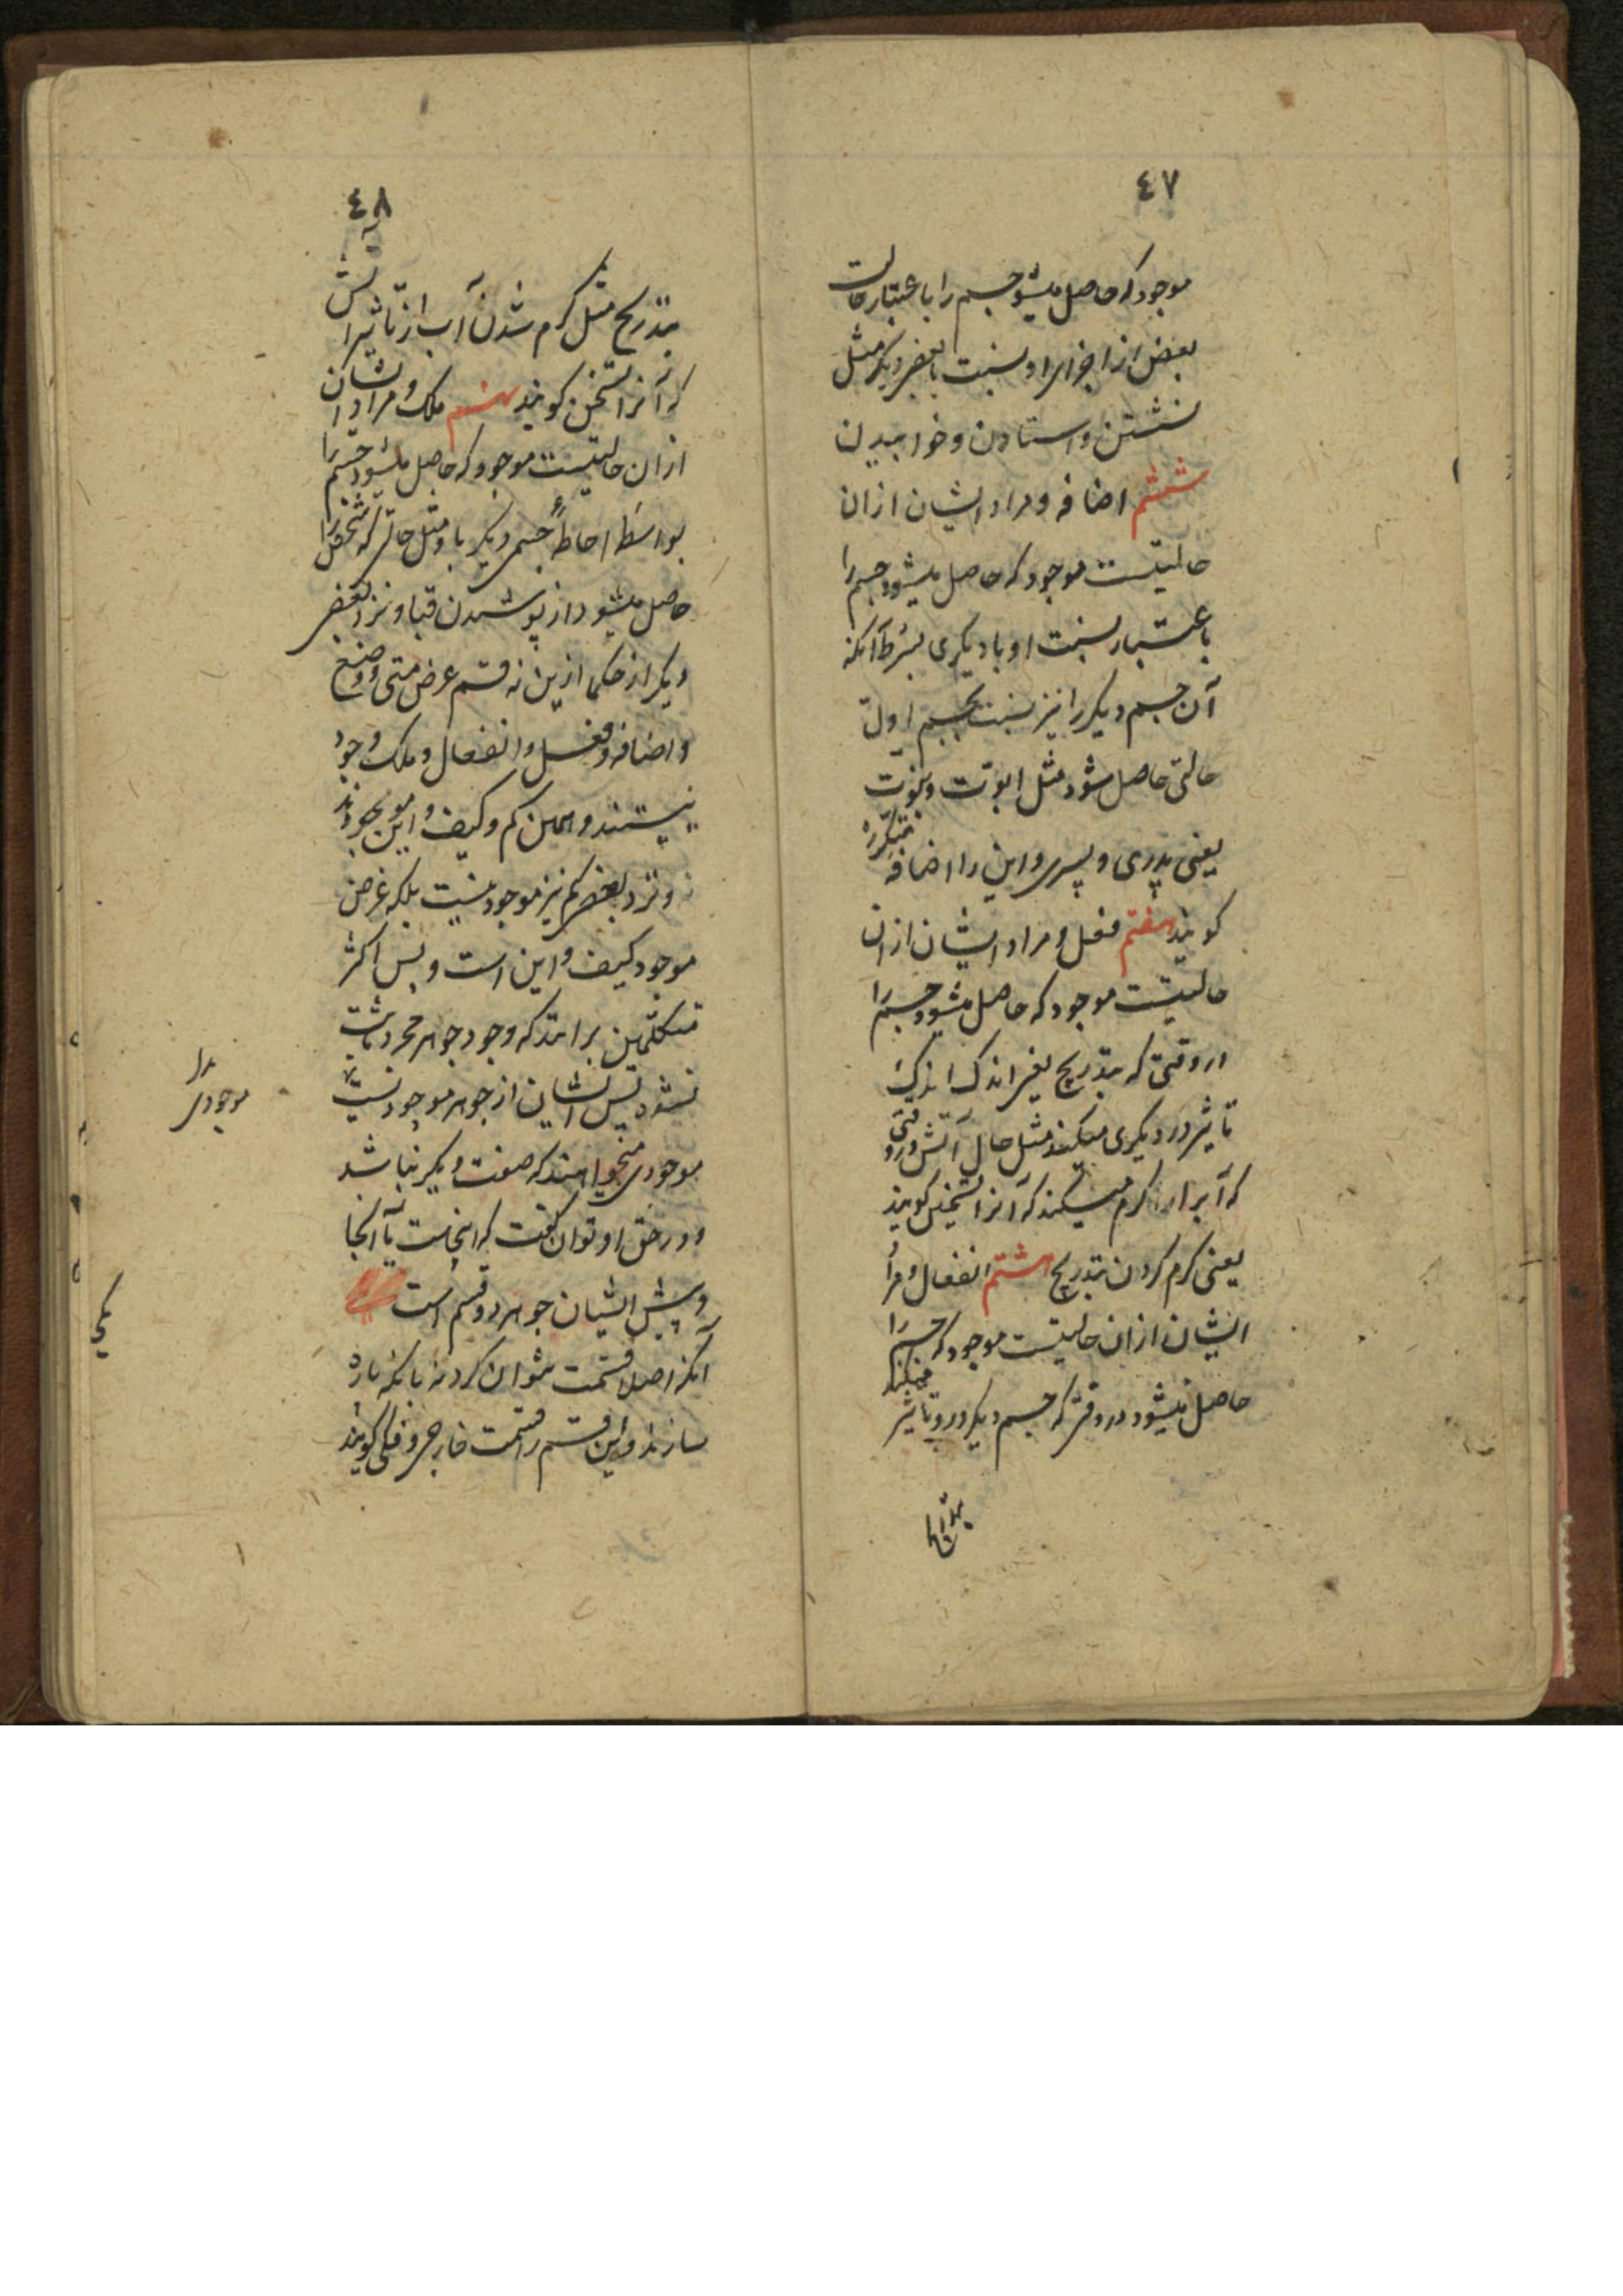 ٤٧
موجود که حاصل میشود جسم را باعتبار حالت
بعض از اجزای او بنسبت با بعض دیگر مثل
نشستن و استادن و خوابیدن
ششم اضافه و مراد ایشان ازان
حالتیست موجود که حاصل میشود جسم را
باعتبار نسبت او با دیگری بشرط آنکه
آن جسم دیگر را نیز بنسبت بجسم اول
حالتی حاصل شود مثل ابوّت و بنوّت
یعنی پدری و پسری و این را اضافه متکرره
کویند هفتم فعل و مراد ایشان ازان
حالتیست موجود که حاصل میشود جسم را
در وقتی که بتدریج یعنی اندک اندک
تاثیر در دیگری میکند مثل حال آتش در وقتی
که آب را کرم میکند که آنرا تسخین کویند
یعنی کرم کردن بتدریج هشتم انفعال و مراد
ایشان ازان حالتیست موجود که جسم را
حاصل میشود در وقتی که جسم دیکر درو تاثیر میکند
بتدریج
٤٨
بتدریج مثل کرم شدن آب از تاثیر آتش
که آنرا تسخن کویند نهم ملک و مراد ایشان
ازان حالتیست موجود که حاصل میشود جسم را
بواسطهٔ احاطهٔ جسمی دیکر باو مثل حالتی که شخص را
حاصل میشود از پوشیدن قبا و نزد بعضی
دیکر از حکما ازین نه قسم عرض متی و وضع
و اضافه و فعل و انفعال و ملک موجود
نیستند و همین کم و کیف و این موجودند
و نزد بعضی کم نیز موجود نیست بلکه عرض
موجود کیف و این است و بس اکثر
متکلمین برانند که وجود جوهر مجرد ثابت
نشده پس ایشان از جوهر موجود نیست
موجودی میخواهند که صفت دیکر نباشد
و در حق او توان کفت که اینجاست یا آنجا
و پیش ایشان جوهر دو قسم است
آنکه اصلا قسمت نتوان کرد نه بانکه پاره
سازند و این قسم را قسمت خارجی و فکی کویند
مرا
موجودی
یکی